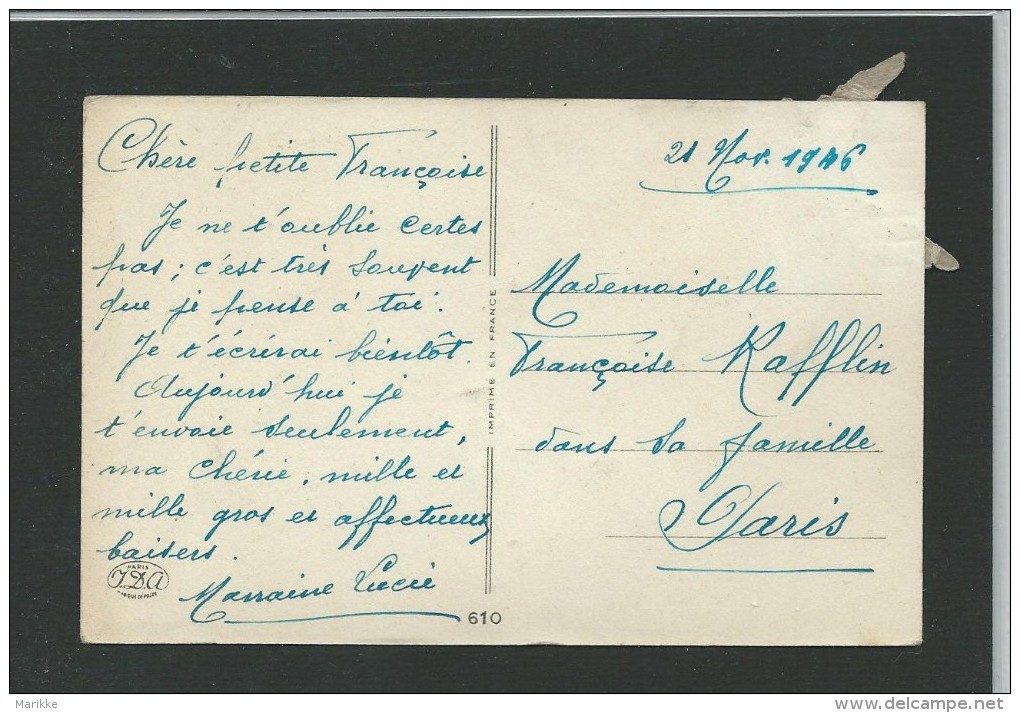 Chère petite Françoise
Je ne t'oublie certes
pas ; c'est très souvent
que je pense à toi.
Je t'écrirai bientôt.
Aujourd'hui je
t'envoie seulement,
ma chérie, mille et
mille gros et affectueux
baisers.
Marraine Lucie
PARIS
J.D.A
MARQUE DÉPOSÉE
610
IMPRIMÉ EN FRANCE
21 Nov. 1946
Mademoiselle
Françoise Rafflin
dans sa famille
Paris
Marikke
www.delcampe.net